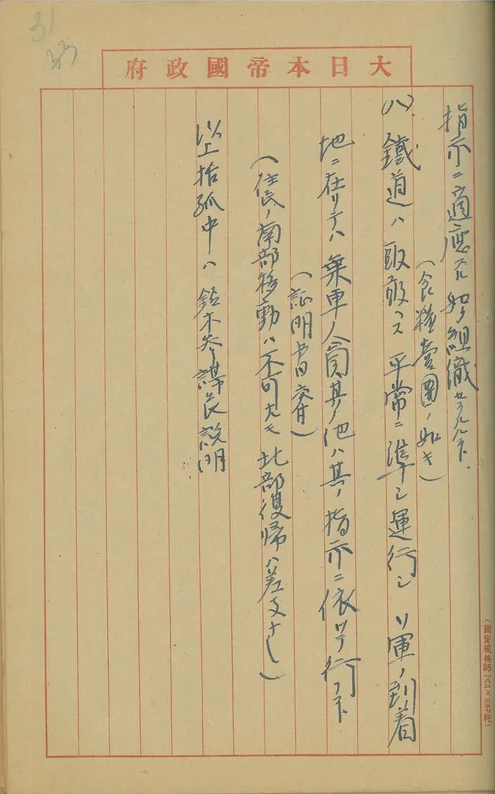 31
33
大日本帝國政府
指示ニ適應スル如ク組織セラルルト
(食糧營團ノ如キ)
(八)鐵道ハ取敢ヘス平常ニ準シ運行シソ軍ノ到着
地ニ在リテハ乗車ノ會同其ノ他ハ其ノ指示ニ依リテ行フト
(証明書交付)
(住民ノ南部移動ハ不可ナルモ北部復帰ハ差支ナシ)
以上括弧中ハ鈴木参謀長説明